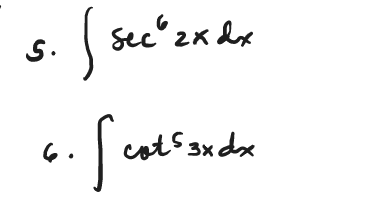 5. ∫ sec⁶ 2x dx
6. ∫ cot⁵ 3x dx